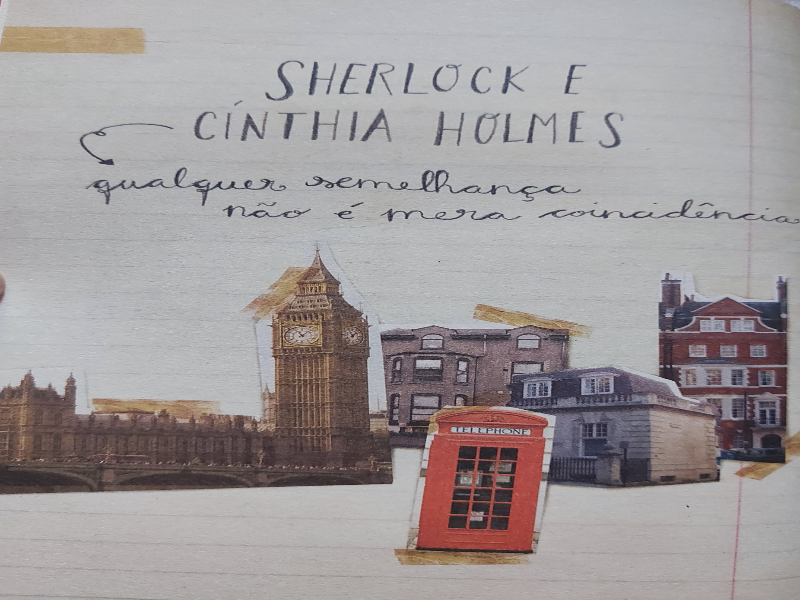 SHERLOCK E
CÍNTHIA HOLMES
qualquer semelhança
não é mera coincidência
TELEPHONE